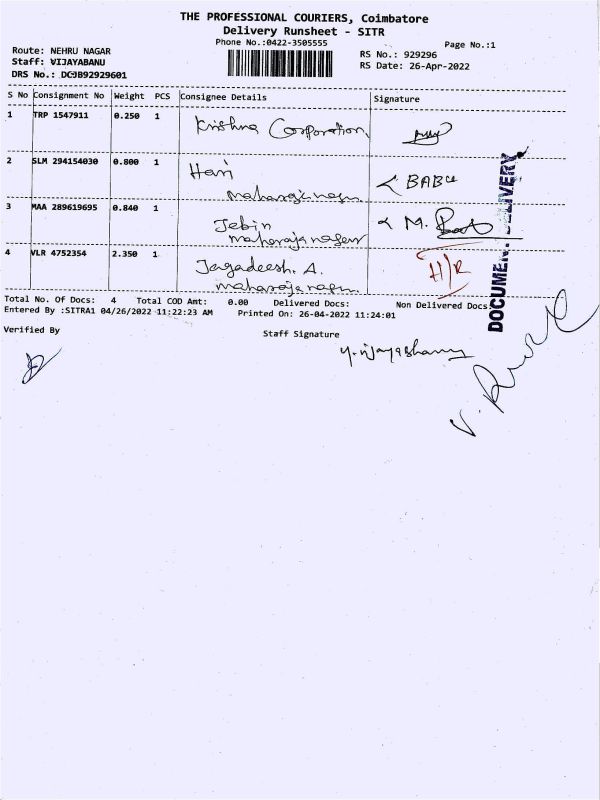 THE PROFESSIONAL COURIERS, Coimbatore
Delivery Runsheet - SITR
Phone No.:0422-3505555
Page No.:1
Route: NEHRU NAGAR
Staff: VIJAYABANU
DRS No.: DC9B92929601
RS No.: 929296
RS Date: 26-Apr-2022
S No Consignment No Weight PCS Consignee Details Signature
1 TRP 1547911 0.250 1 Krishna Corporation
2 SLM 294154030 0.800 1 Hari
maharajanagar BABU
3 MAA 289619695 0.840 1 Jebin M.
maharajanagar
4 VLR 4752354 2.350 1 Jagadeesh. A. H/R
maharajanagar
DOCUMENT DELIVERY
Total No. Of Docs: 4 Total COD Amt: 0.00 Delivered Docs: Non Delivered Docs
Entered By :SITRA1 04/26/2022 11:22:23 AM Printed On: 26-04-2022 11:24:01
Verified By Staff Signature